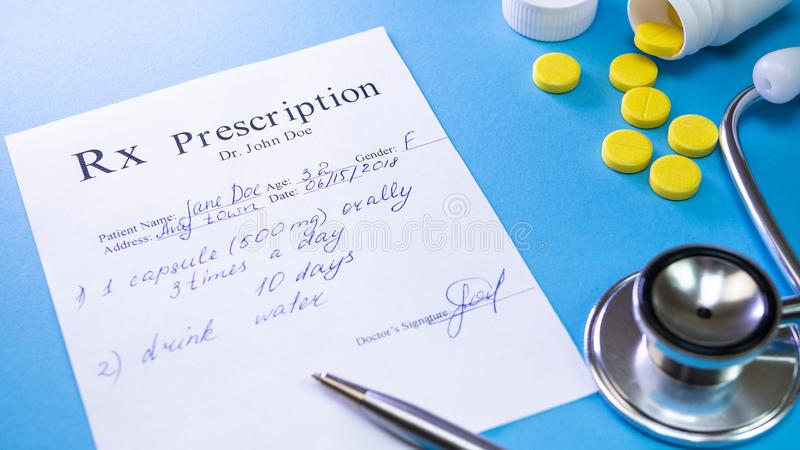 Rx Prescription
Dr. John Doe
Patient Name: Jane Doe Age: 32 Gender: F
Address: Any town Date: 06/15/2018
1) 1 capsule (500 mg) orally
3 times a day
10 days
2) drink water
Doctor's Signature